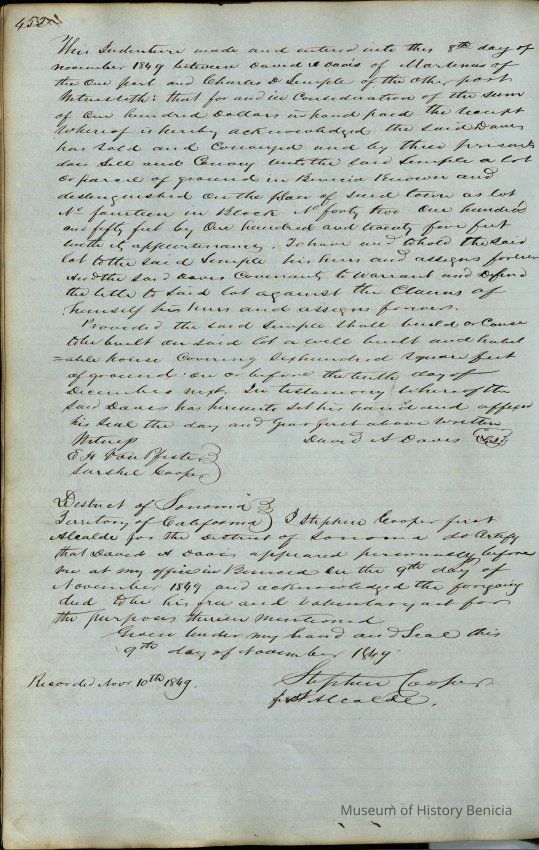 452
This Indenture made and entered into this 8th day of
november 1849 between David A Davis of Martines of
the One part and Charles D Semple of the Other part
Witnesseth: that for and in Consideration of the sum
of One hundred Dollars in hand paid the receipt
whereof is hereby acknowledged the said Davis
has sold and Conveyed and by these presents
does Sell and Convey unto the said Semple a lot
or parcel of ground in Benicia Known and
distinguished On the plan of said town as lot
No fourteen in Block No forty two One hundred
and fifty feet by One hundred and twenty five feet
with its appurtenances. To have and to hold the said
lot to the said Semple his heirs and assigns forever
And the said Davis Covenants to Warrant and Defend
the title to said lot against the Claims of
himself his heirs and assigns forever.
Provided the said Semple shall build or Cause
to be built on said lot a well built and habit
=able house Covering Six hundred Square feet
of ground on or before the tenth day of
December next. In testamony whereof the
said Davis has hereunto set his hand and affixed
his Seal the day and year first above written
Witness David A Davis Seal
E H Von Pfister
Sarshel Cooper
District of Sonoma
Territory of California I Stephen Cooper first
Alcalde for the District of Sonoma do Certify
that David A Davis appeared personally before
me at my office in Benicia on the 9th day of
November 1849 and acknowledged the forgoing
deed to be his free and Voluntary act for
the purposes therein mentioned
Given under my hand and Seal this
9th day of November 1849
Recorded Novr 10th 1849. Stephen Cooper
first Alcalde.
Museum of History Benicia